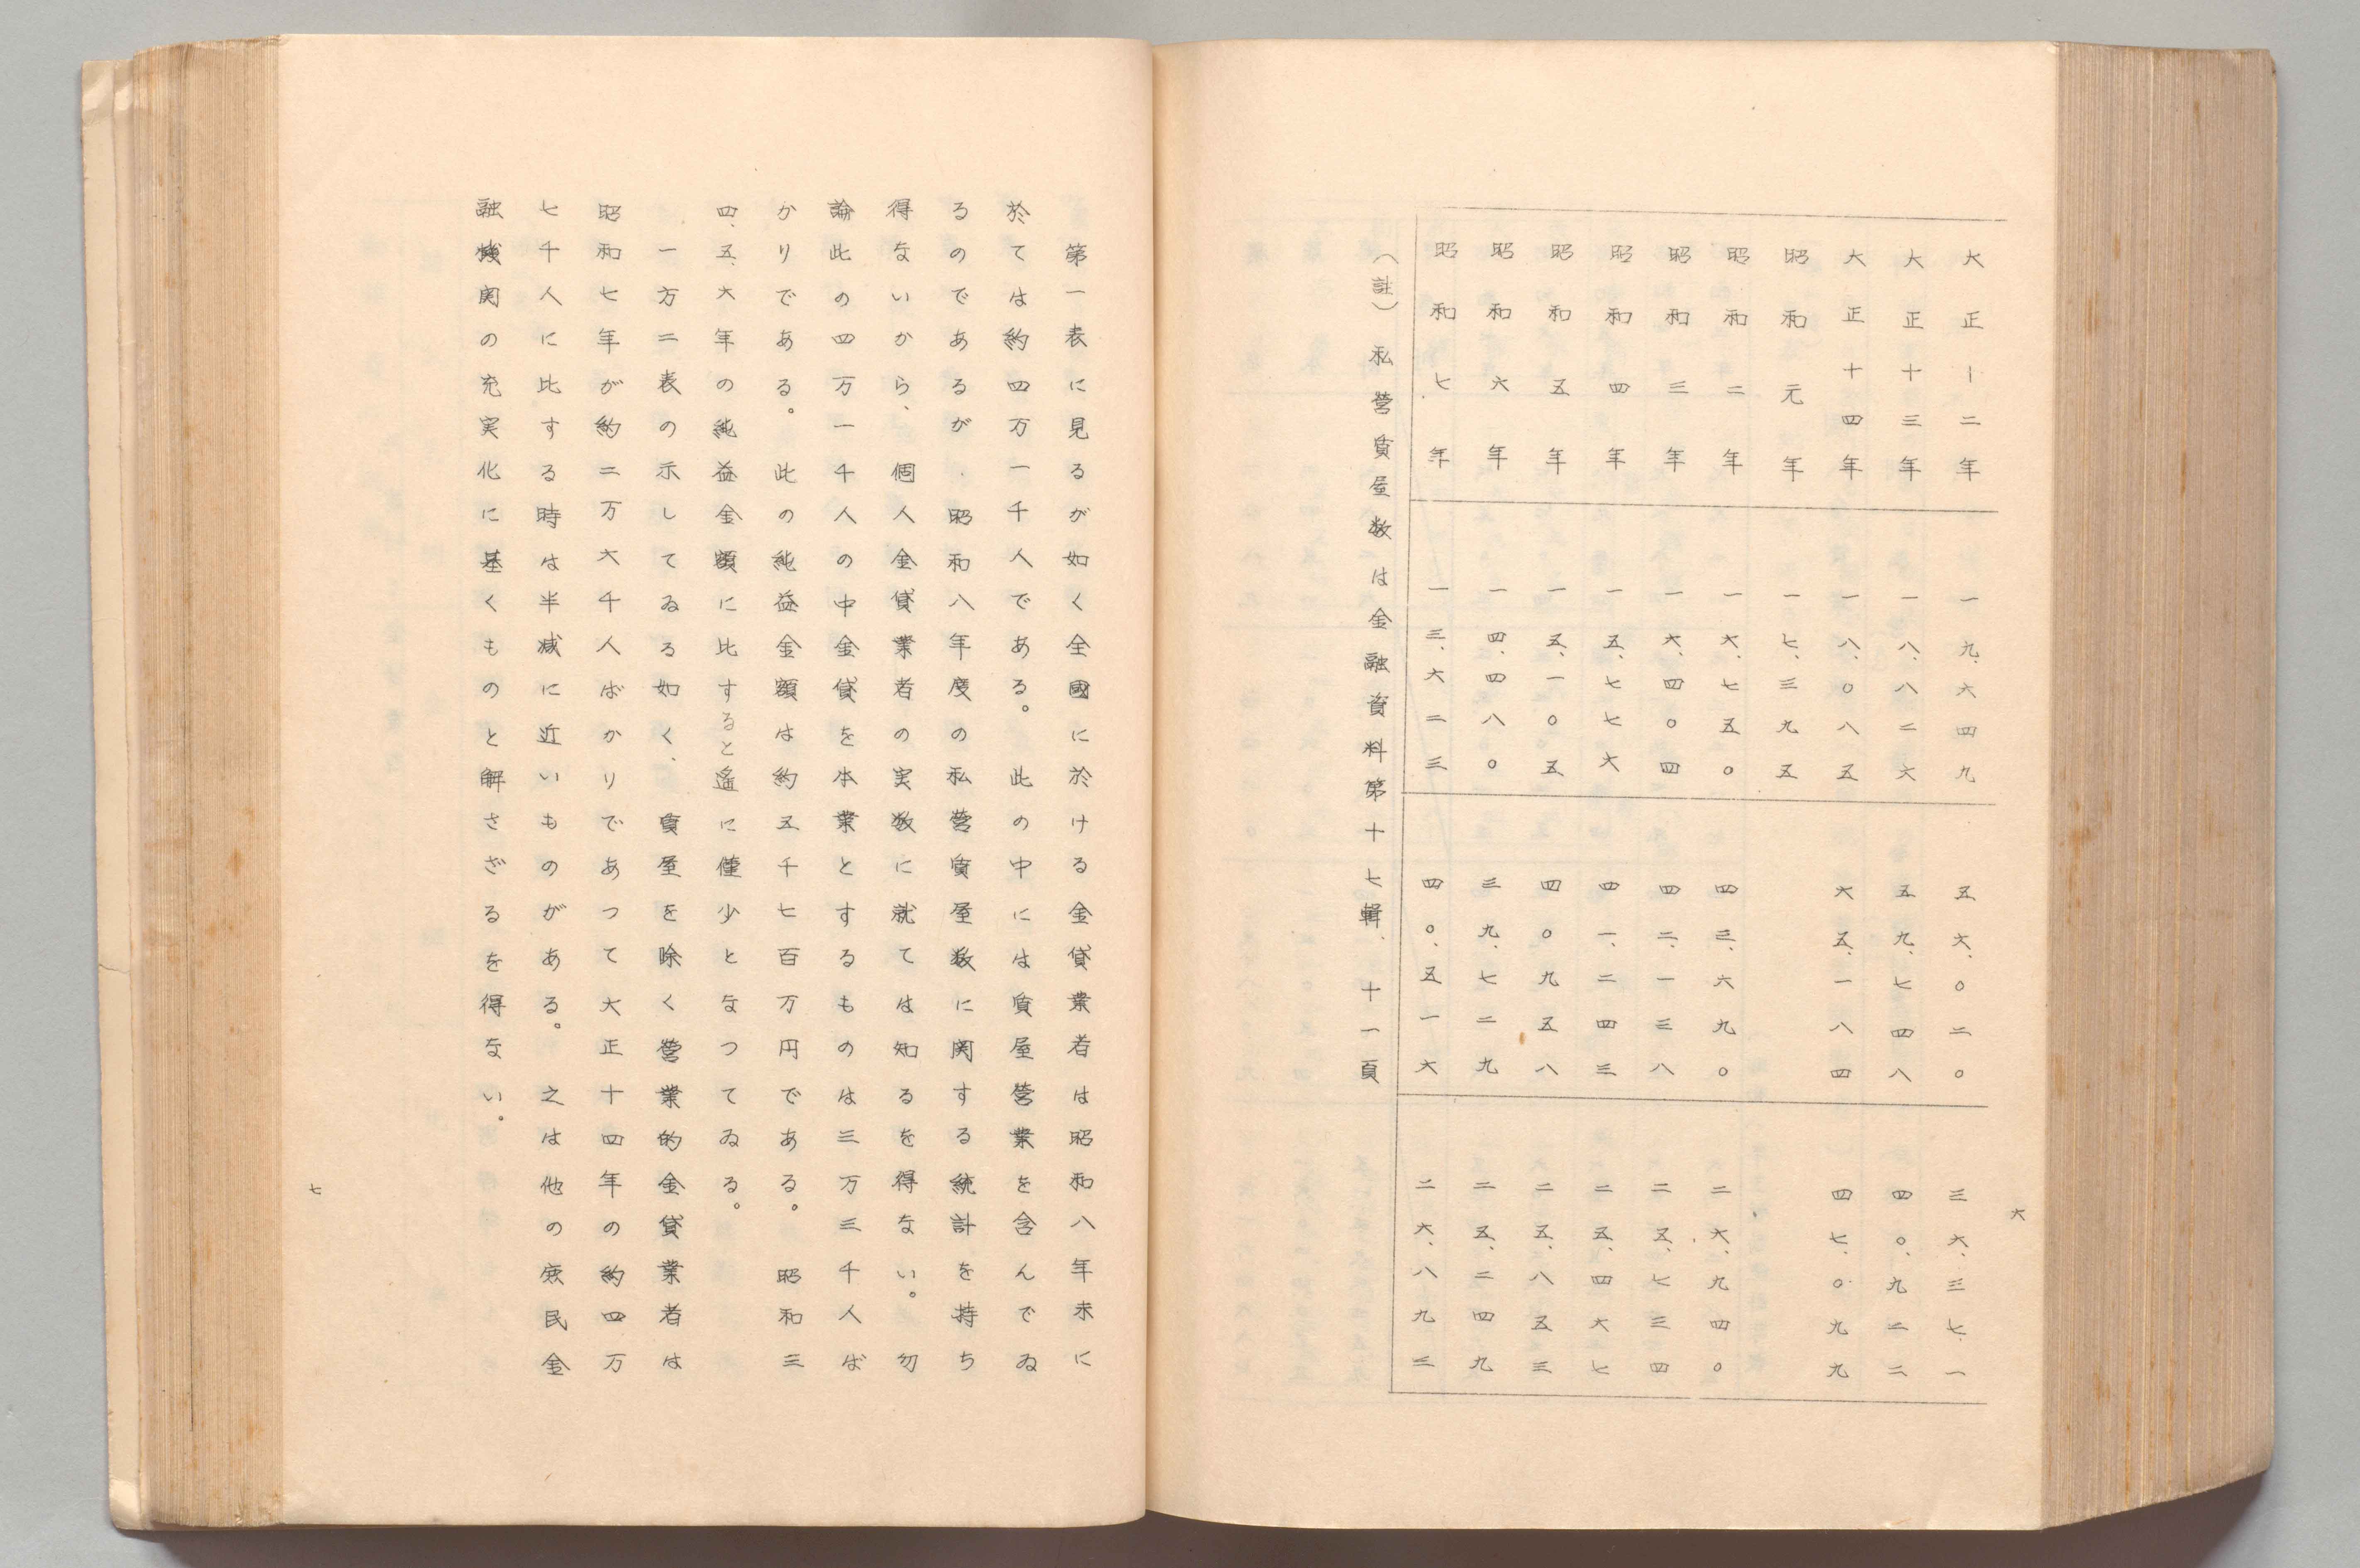 六
大正十二年 一九、六四九 五六、〇二〇 三六、三七、一
大正十三年 一八、八二六 五九、七四八 四〇、九二二
大正十四年 一八、〇八五 六五、一八四 四七、〇九九
昭和元年 一七、三九五
昭和二年 一六、七五〇 四三、六九〇 二六、九四〇
昭和三年 一六、四〇四 四二、一三八 二五、七三四
昭和四年 一五、七七六 四一、二四三 二五、四六七
昭和五年 一五、一〇五 四〇九五八 二五、八五三
昭和六年 一四、四八〇 三九、七二九 二五、二四九
昭和七年 一三、六二三 四〇、五一六 二六、八九三
(註)私営質屋数は金融資料第十七輯、十一頁
第一表に見るが如く全國に於ける金貸業者は昭和八年末に
於ては約四万一千人である。此の中には質屋営業を含んでゐ
るのであるが、昭和八年度の私営質屋数に関する統計を持ち
得ないから、個人金貸業者の実数に就ては知るを得ない。勿
論此の四万一千人の中金貸を本業とするものは三万三千人ば
かりである。此の純益金額は約五千七百万円である。昭和三
四、五、六年の純益金額に比すると遙に僅少となつてゐる。
一方二表の示してゐる如く、質屋を除く営業的金貸業者は
昭和七年が約二万六千人ばかりであつて大正十四年の約四万
七千人に比する時は半減に近いものがある。之は他の庶民金
融機関の充実化に基くものと解さざるを得ない。
七